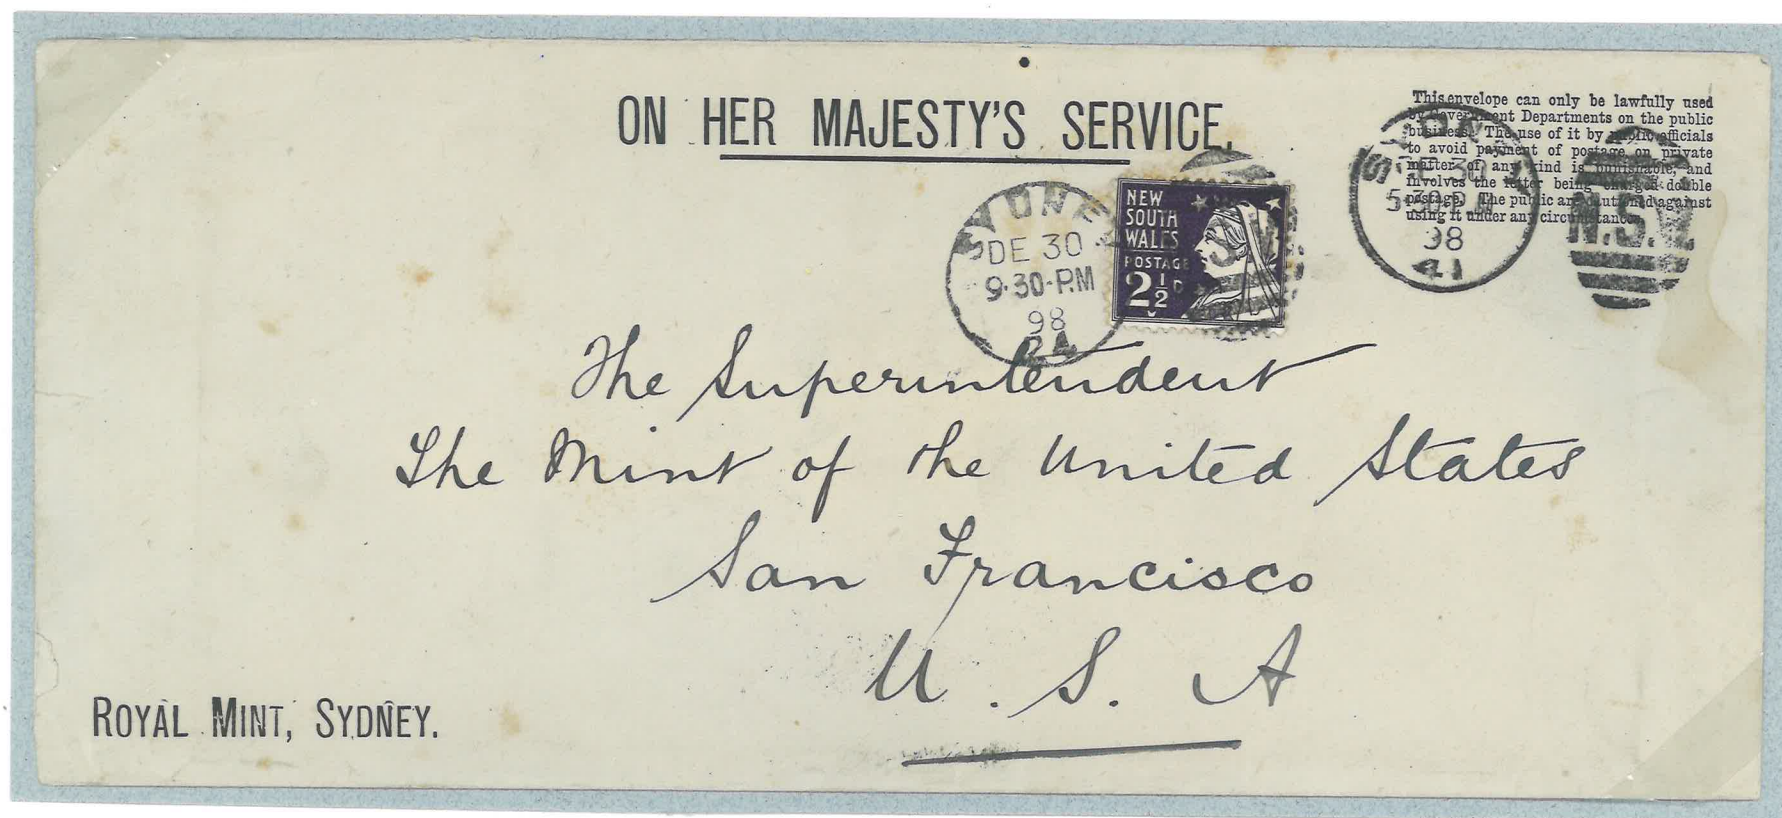 ON HER MAJESTY'S SERVICE.
This envelope can only be lawfully used
by Government Departments on the public
business. The use of it by public officials
to avoid payment of postage on private
matter of any kind is punishable, and
involves the letter being charged double
postage. The public are cautioned against
using it under any circumstances.
SYDNEY
DE 30
5·30 P.M
98
41
N.S.W
SYDNEY
DE 30
9·30·P.M
98
24
NEW
SOUTH
WALES
POSTAGE
2½D
The Superintendent
The Mint of the United States
San Francisco
U. S. A
ROYAL MINT, SYDNEY.